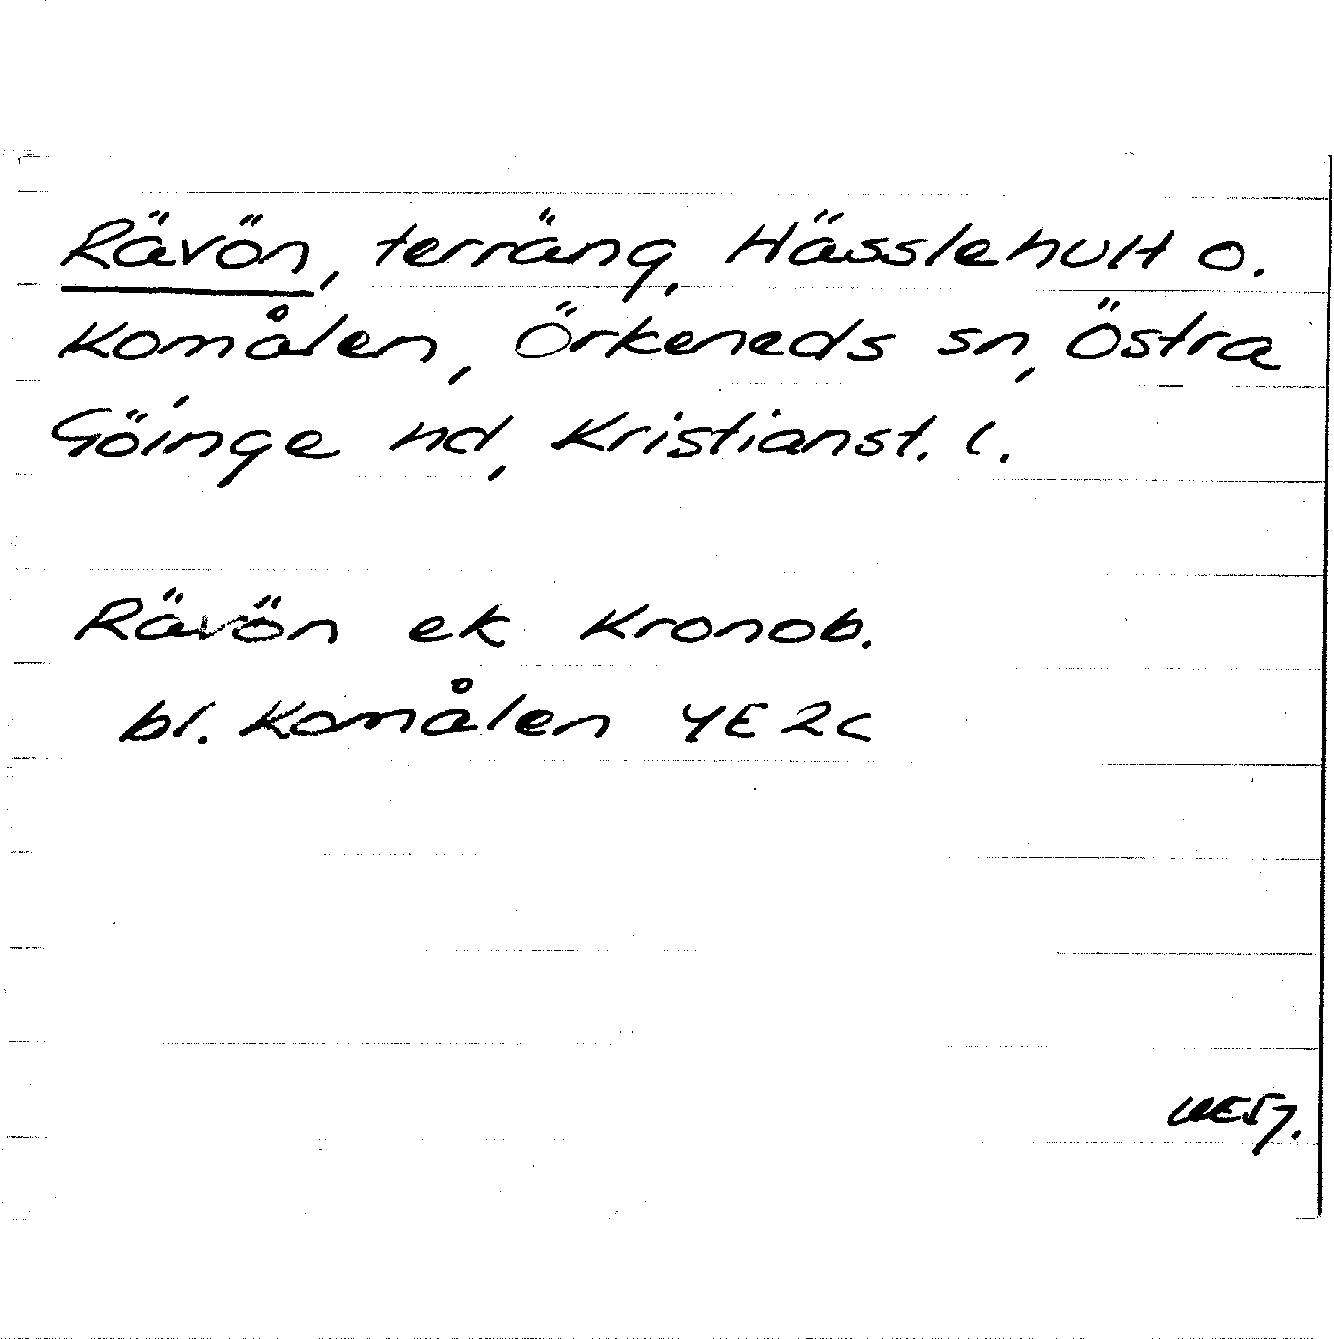 Rävön, terräng, Hässlehult o.
Komålen, Örkeneds sn, Östra
Göinge hd, Kristianst. l.
Rävön ek Kronob.
bl. Komålen 4E2c